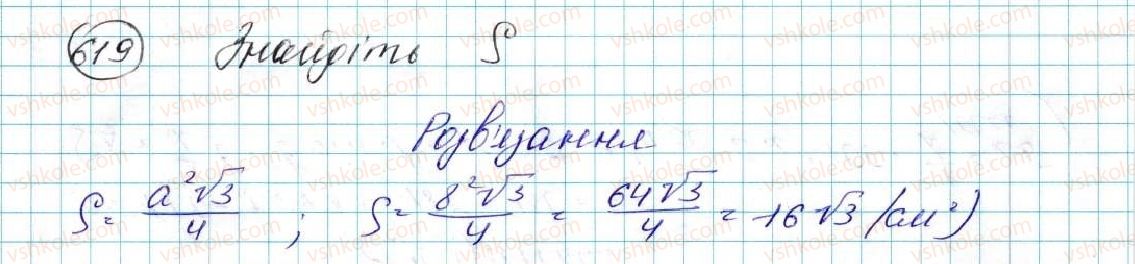 619 Знайдіть S
Розв'язання
S = a²√3/4 ; S = 8²√3/4 = 64√3/4 = 16√3 (см²)